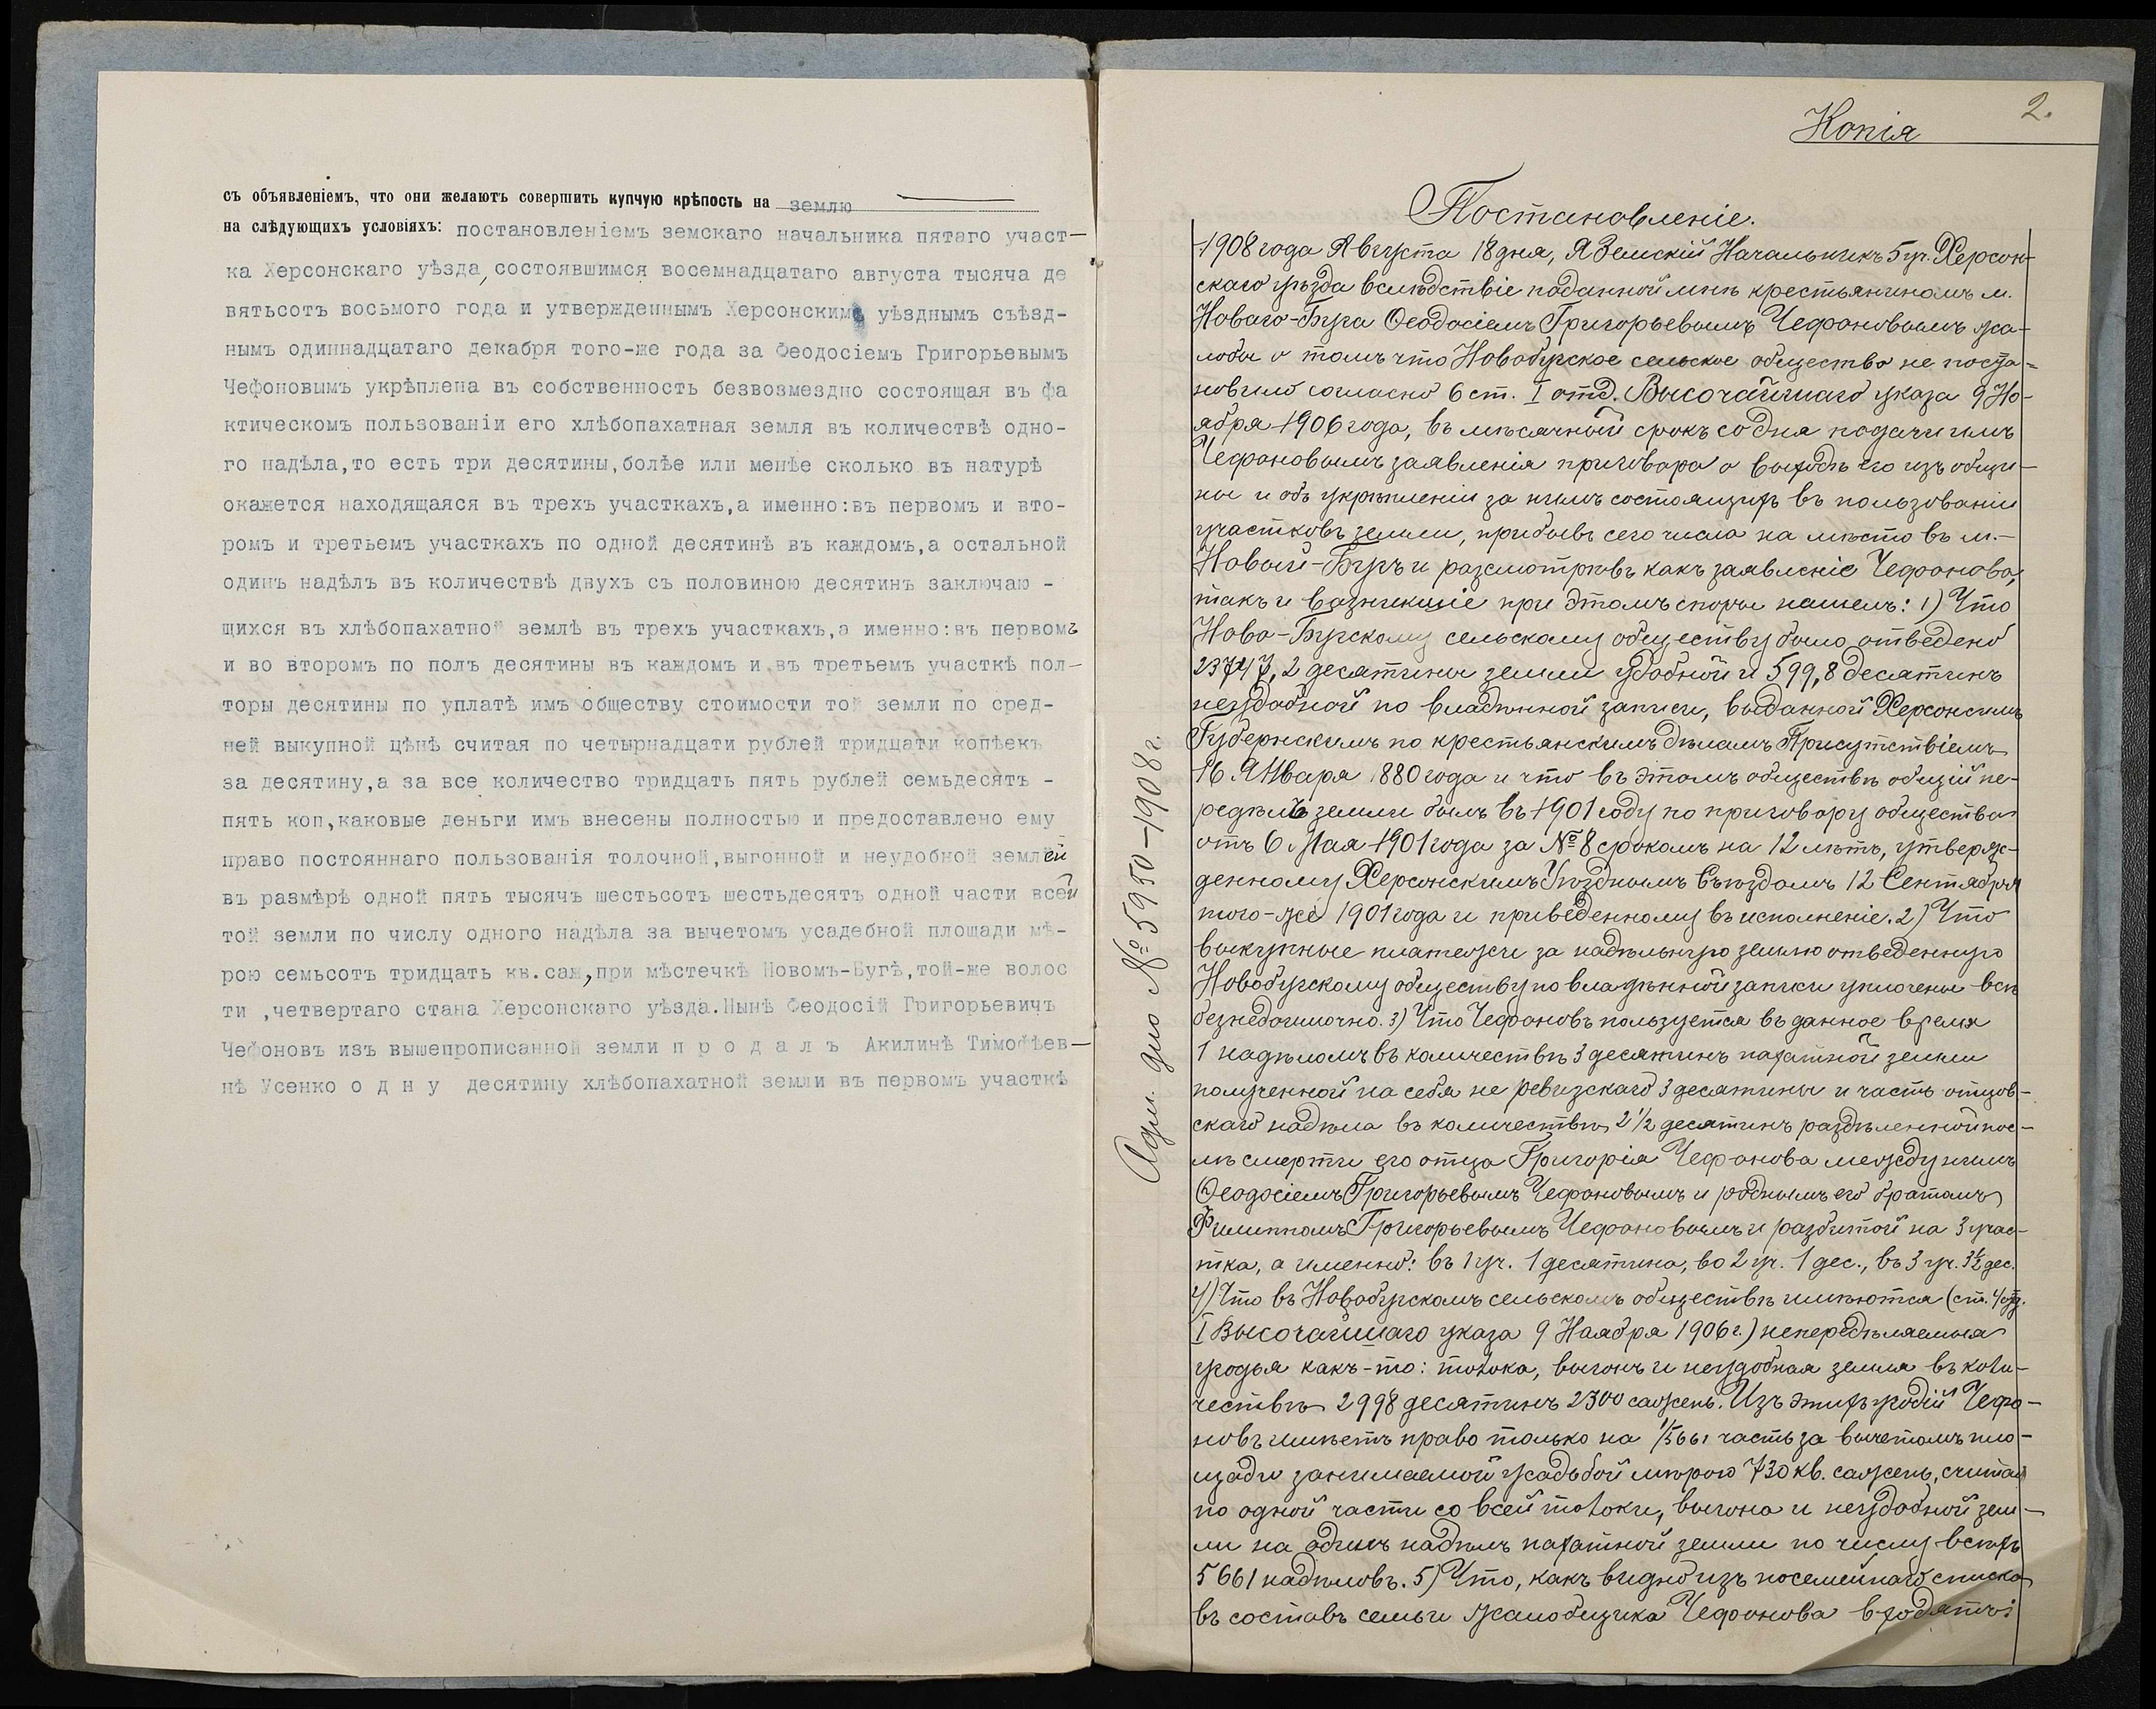 съ объявленіемъ, что они желаютъ совершить купчую крѣпость на землю
на слѣдующихъ условіяхъ: постановленіемъ земскаго начальника пятаго участ-
ка Херсонскаго уѣзда,состоявшимся восемнадцатаго августа тысяча де
вятьсотъ восьмого года и утвержденнымъ Херсонскимъ уѣзднымъ съѣзд-
нымъ одиннадцатаго декабря того-же года за Феодосіемъ Григорьевымъ
Чефоновымъ укрѣплена въ собственность безвозмездно состоящая въ фа
ктическомъ пользованіи его хлѣбопахатная земля въ количествѣ одно-
го надѣла,то есть три десятины,болѣе или менѣе сколько въ натурѣ
окажется находящаяся въ трехъ участкахъ,а именно:въ первомъ и вто-
ромъ и третьемъ участкахъ по одной десятинѣ въ каждомъ,а остальной
одинъ надѣлъ въ количествѣ двухъ съ половиною десятинъ заключаю -
щихся въ хлѣбопахатной землѣ въ трехъ участкахъ,а именно:въ первомъ
и во второмъ по полъ десятины въ каждомъ и въ третьемъ участкѣ пол-
торы десятины по уплатѣ имъ обществу стоимости той земли по сред-
ней выкупной цѣнѣ считая по четырнадцати рублей тридцати копѣекъ
за десятину,а за все количество тридцать пять рублей семьдесятъ -
пять коп,каковые деньги имъ внесены полностью и предоставлено ему
право постояннаго пользованія толочной,выгонной и неудобной землей
въ размѣрѣ одной пять тысячъ шестьсотъ шестьдесятъ одной части всей
той земли по числу одного надѣла за вычетомъ усадебной площади мѣ-
рою семьсотъ тридцать кв.саж,при мѣстечкѣ Новомъ-Бугѣ,той-же волос
ти ,четвертаго стана Херсонскаго уѣзда.Нынѣ Феодосій Григорьевичъ
Чефоновъ изъ вышепрописанной земли п р о д а л ъ Акилинѣ Тимофѣев-
нѣ Усенко о д н у десятину хлѣбопахатной земли въ первомъ участкѣ
2.
Копія
Постановленіе.
1908 года Августа 18 дня, Я Земскій Начальникъ 5 уч. Херсон-
скаго уѣзда вслѣдствіе поданной мнѣ крестьяниномъ м.
Новаго-Буга Ѳеодосіемъ Григорьевымъ Чефоновымъ жа-
лобы о томъ что Новобугское сельское общество не поста-
новило согласно 6 ст. I отд. Высочайшаго указа 9 Но-
ября 1906 года, въ мѣсячный срокъ со дня подачи имъ
Чефоновымъ заявленія приговора о выходѣ его изъ общи-
ны и объ укрѣпленіи за нимъ состоящихъ въ пользованіи
участковъ земли, прибывъ сего числа на мѣсто въ м.-
Новый-Бугъ и разсмотрѣвъ какъ заявленіе Чефонова,
такъ и вазникшіе при этомъ споры нашелъ: 1) Что
Ново-Бугскому сельскому обществу было отведено
23747,2 десятины земли удобной и 599,8 десятинъ
неудобной по владѣнной записи, выданной Херсонскимъ
Губернскимъ по крестьянскимъ дѣламъ Присутствіемъ
16 Января 1880 года и что въ этомъ обществѣ общій пе-
редѣлъ земли былъ въ 1901 году по приговору общества
отъ 6 Мая 1901 года за № 8 срокомъ на 12 лѣтъ, утверж-
денному Херсонскимъ Уѣзднымъ Съѣздомъ 12 Сентября
того-же 1901 года и приведенному въ исполненіе. 2) Что
выкупные платежи за надѣльную землю отведенную
Новобугскому обществу по владѣнной записи уплочены всѣ
безнедоимочно. 3) Что Чефоновъ пользуется въ данное время
1 надѣломъ въ количествѣ 3 десятинъ пахатной земли
полученной на себя не ревизскаго 3 десятины и часть отцов-
скаго надѣла въ количествѣ 2½ десятинъ раздѣленной пос-
лѣ смерти его отца Григорія Чефонова между нимъ
Ѳеодосіемъ Григорьевымъ Чефоновымъ и роднымъ его братомъ
Филиппомъ Григорьевымъ Чефоновымъ и разбитой на 3 учас-
тка, а именно: въ 1 уч. 1 десятина, во 2 уч. 1 дес., въ 3 уч. 3½ дес.
4) Что въ Новобугскомъ сельскомъ обществѣ имѣются (ст. 4 отд.
I Высочайшаго указа 9 Наября 1906 г.) непередѣляемыя
угодья какъ-то: толока, выгонъ и неудобная земля въ коли-
чествѣ 2998 десятинъ 2300 сажень. Изъ этихъ угодій Чефо-
новъ имѣетъ право только на 1/5661 часть за вычетомъ пло-
щади занимаемой усадьбой мѣрою 730 кв. сажень, считая
по одной части со всей толоки, выгона и неудобной зем-
ли на одинъ надѣлъ пахатной земли по числу всѣхъ
5661 надѣловъ. 5) Что, какъ видно изъ посемейнаго списка
въ составъ семьи жалобщика Чефонова входятъ:
Адм. дѣло № 5950-1908 г.